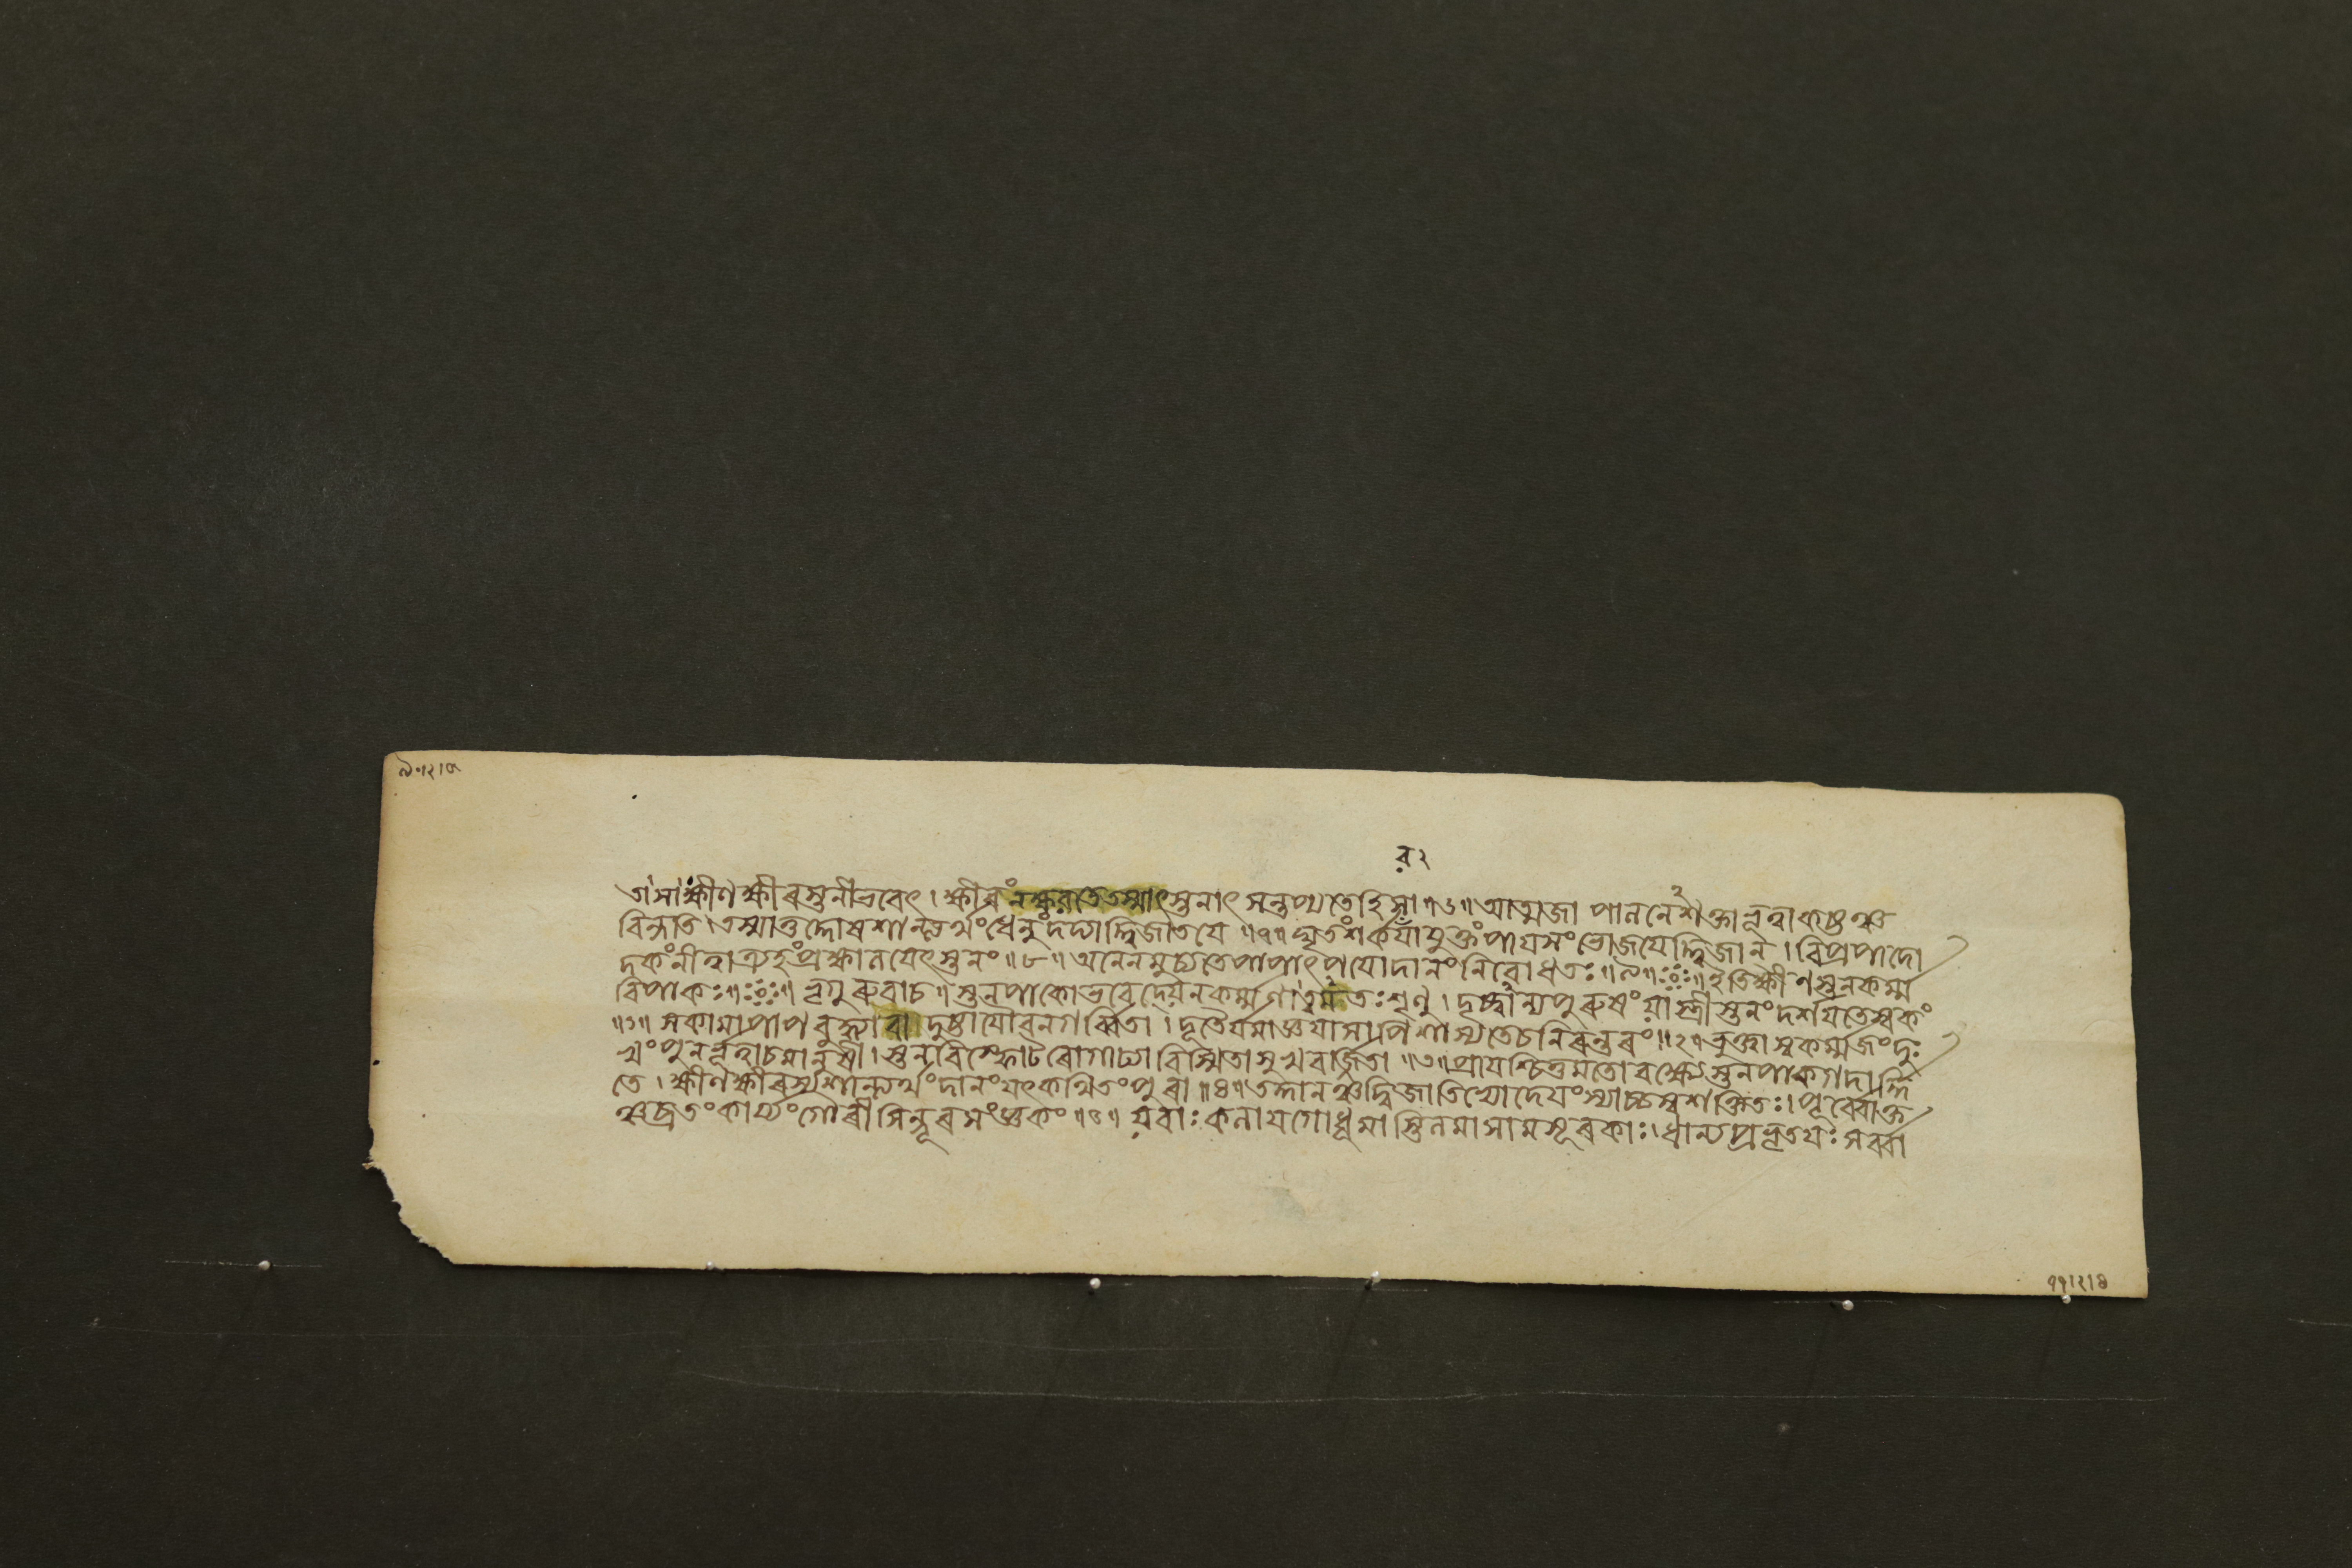 ৰ২
তা সা ক্ষীণক্ষীৰস্তনীভবেৎ । ক্ষীৰং নক্ষৰতে তস্মাৎ স্তনাৎ সন্তপ্যতে হি সা ॥৬॥ আত্মজা পালনে শক্তা
বিন্দতি । এতস্মাত্তদ্দোষশান্ত্যৰ্থং ধেনুং দদ্যাদ্দ্বিজাতযে ॥৭॥ ঘৃতংশৰ্কৰাযুক্তং পাযসং ভোজযেদ্দ্বিজান্ । বিপ্ৰপাদো
দকং নীত্বা ত্ৰ্যহং প্ৰক্ষালযেৎ স্তনং ॥৮॥ অনেন মুচ্যতে পাপাৎ পযোদানং নিবোধত ॥৯॥ ইতিক্ষীণস্তনকৰ্ম্ম
বিপাকঃ ॥ ভৃগুৰুবাচ ॥ স্তনপাকোভবেদ্যেন কৰ্ম্মণা শৃণু । দৃষ্ট্বান্যপুৰুষং যা স্ত্ৰী স্তনং দৰ্শযতে স্বকং
॥১॥ সকামা পাপবুদ্ধ্যা বা দুষ্টা যৌবনগৰ্ব্বিতা । দূতৈৰ্যমাজ্ঞযা সাপি শাস্যতে চ নিৰন্তৰং ॥২॥ ভুক্ত্বা স্বকৰ্ম্মজং দুঃ
খং পুনৰ্ভূত্বা চ মানুষী । স্তনবিস্ফোটৰোগাঢ্যা বিস্মিতা সুখবৰ্জিতা ॥৩॥ প্ৰাযশ্চিত্তমতো বক্ষ্যে স্তনপাকগদাৰ্দ্দি
তে । ক্ষীণক্ষীৰস্য শান্ত্যৰ্থং দানং যৎকথিতং পুৰা ॥৪॥ তদ্দানঞ্চ দ্বিজাতিভ্যো দেযং স্যাচ্চ স্বশক্তিতঃ । পূৰ্ব্বোক্ত
ঞ্চ ব্ৰতং কাৰ্য্যং গৌৰী সিন্দূৰসংজ্ঞকং ॥৫॥ যবাঃ কলাযগোধূমাস্তিলমাষামসূৰকাঃ । ধান্যপ্ৰভৃতযঃ সৰ্ব্বা
৭৭।২।৪